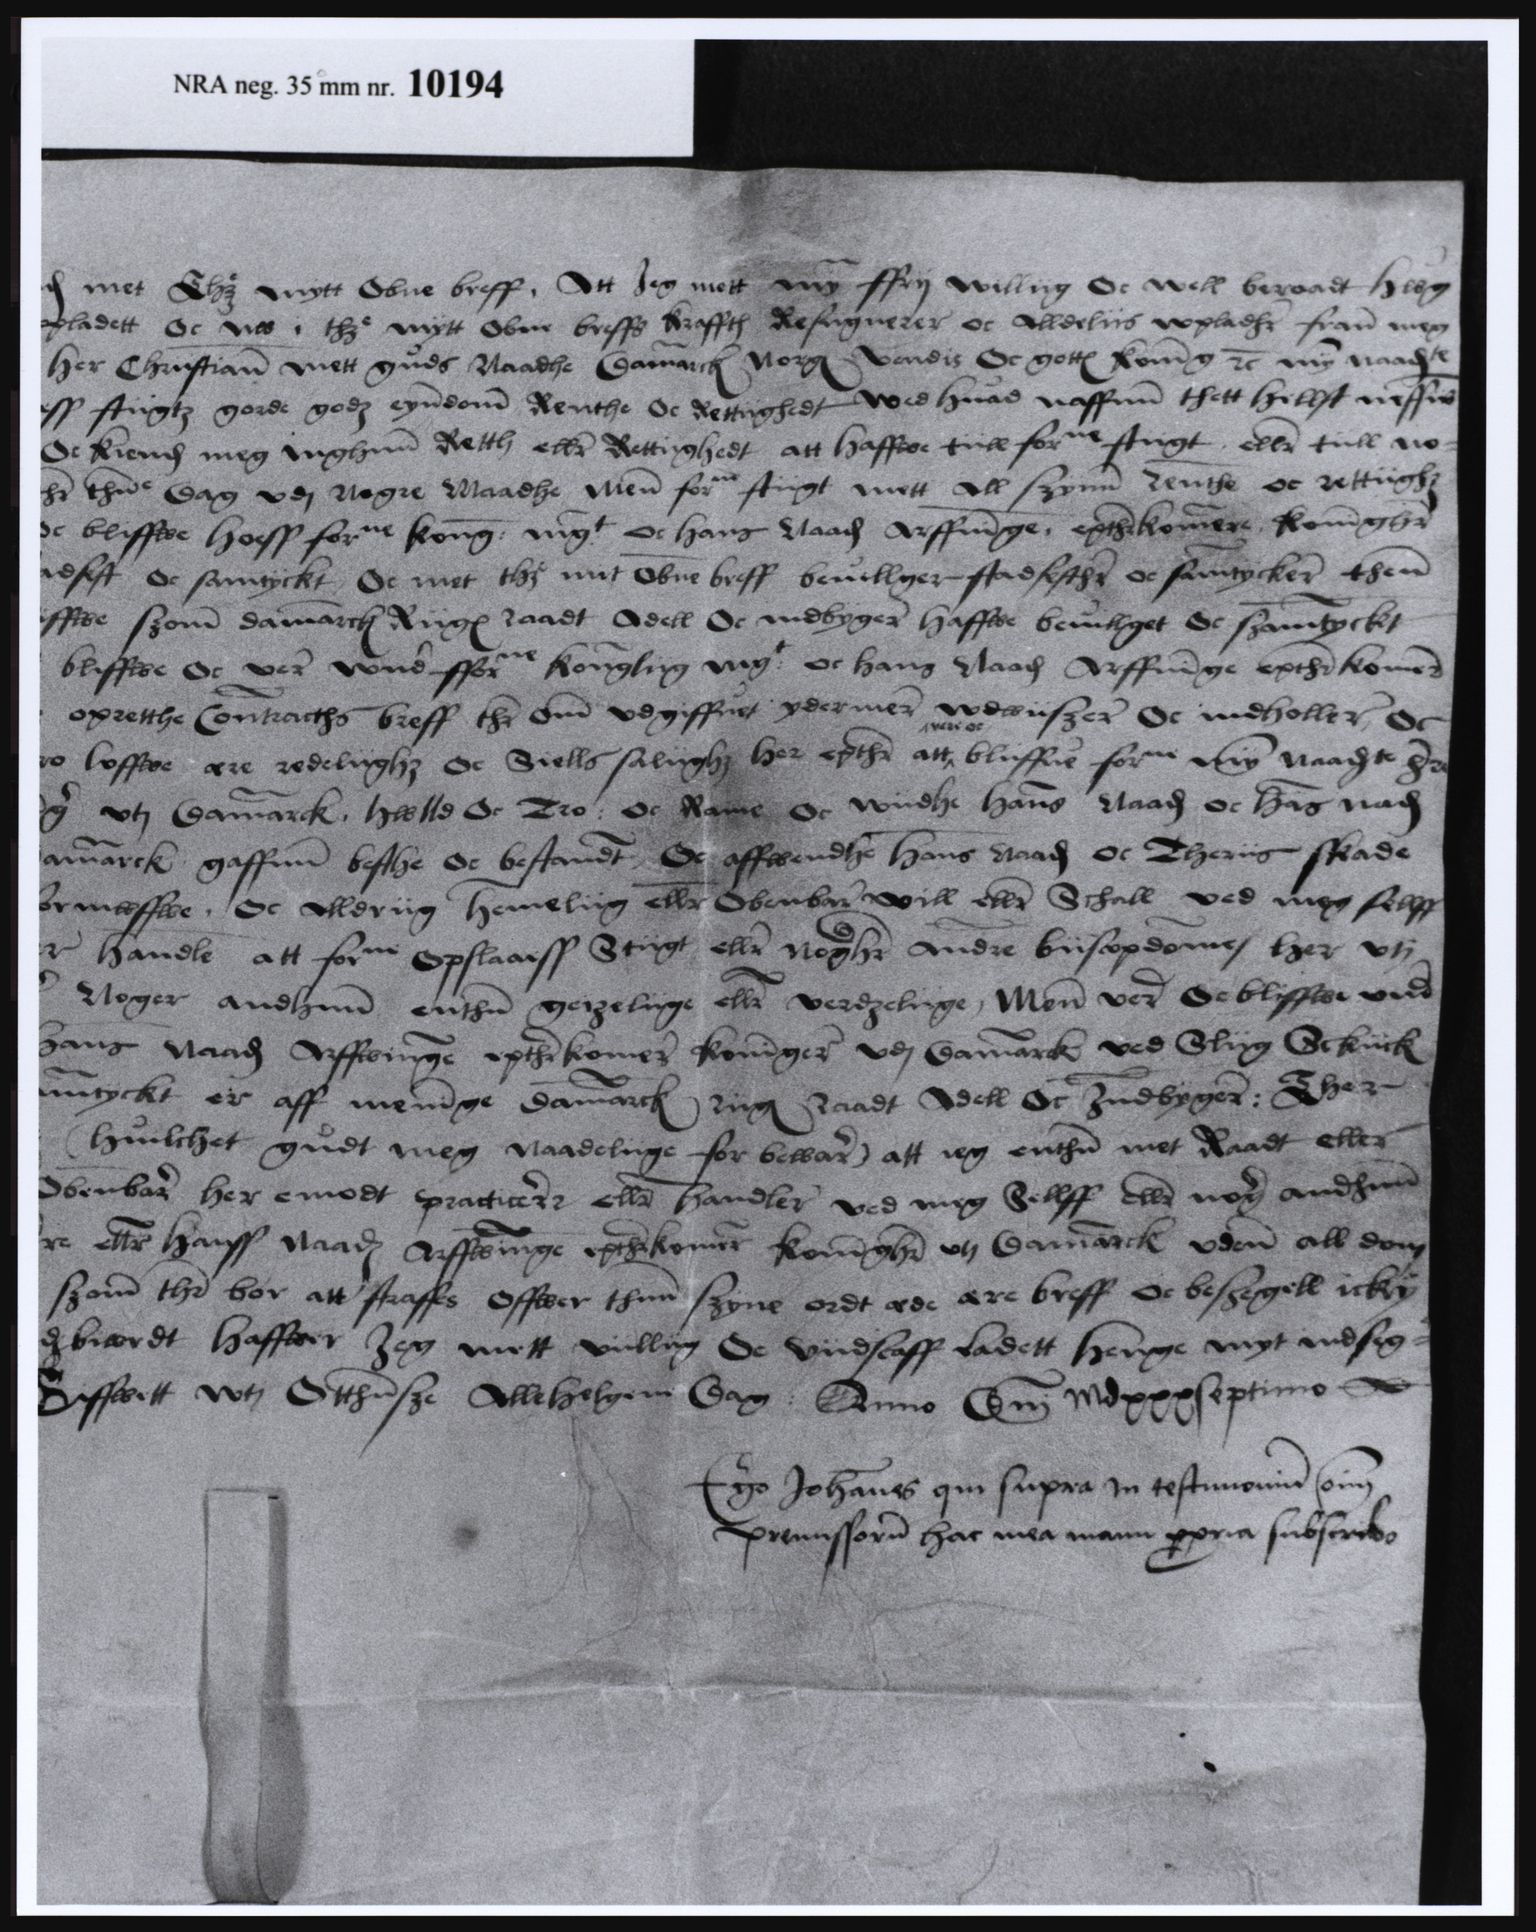 NRA neg. 35 mm nr. 10194
met Thz mytt Obne breff, Att Jeg mett my ffrij willig Oc well beroadt hwg
opladett Oc nw i thz mytt obne breffs krafft Resignerer oc Alldeliis opladhr fran meg
her Christian mett guds Naadhe Danmarck Norg Vendis Oc gott Koni͞g rc my naadte
stiigtz gorde godz eyndom Renthe Oc Rettighedt wed huad naffnn thett hellst neffnis
Oc kiend meg inghnn Retth ellr Rettighedt att haffwe till forne stiigt ellr till no-
thne Dag vdj Nogre Maadhe Men forne stiigt mett All szynn renthe oc rettiighz
oc bliffwe hoess forne kong: mgt oc hans Naad Arffinge, epthrkomere konighr
oc samtyckt Oc met thz mit Obne breff beuillger stadfesthr oc samtycker them
szom danmarck Riigs raadt Adell Oc indbyger haffwe beuilget Oc szamtyckt
bliffwe Oc ver wnd fforne kongliig mgt: oc hans Naad Arffinge epthrkomer
opretthe Contracths breff thr Om vdgiffuet ydermer wdwiiszer Oc indholler Oc
loffwe ære redeliighz Oc Siells saliighz her epthr att were oc bliffue forne my Naadte hre
vtj Danmarck, hwlld Oc Tro: oc Rame oc wiidhe hans Naad oc hans nad
gaffnn besthe Oc bestandt Oc affwendhe hans Naad oc Theriis skade
formwffwe, Oc Alldriig hemeliig ellr Obenbar will ellr Schall ved meg sellff
handle att forne Opslaaeff Stiigt ellr Noghr andre biiscopdomer her vtj
Noger andhnn enthn geyzeliige ellr verdzeliige, Men ver Oc bliffwe vnd
hans Naad Arffwinge epthrkomer koniger vdj Danmarck ved Sliig Sckiick
er aff menige Danmarck Riigs Raadt Adell Oc Indbyger: Ther
(huilchet gudt meg naadeliige for bewar) att ieg enthn met Raadt eller
Obenbar her emodt practicerr ellr handler ved meg Sellff ellr nogr andhnn
ellr hanss Naad Arffwinge epthrkomer konighr vtj Danmarck vden all dom
szom thr bor att straffes Offwer thnn szyne ordt æde ære breff oc beszegell ickij
haffwer Jeg mett villiig Oc viidscaff ladett henge myt indseg-
Giffwett wtj Otthnsze Allehelgens Dag: Anno Dni Mdxxxseptimo
Ego Johanes qui supra in testimoniu oim
premissoru hac mea manu ppria subscribo